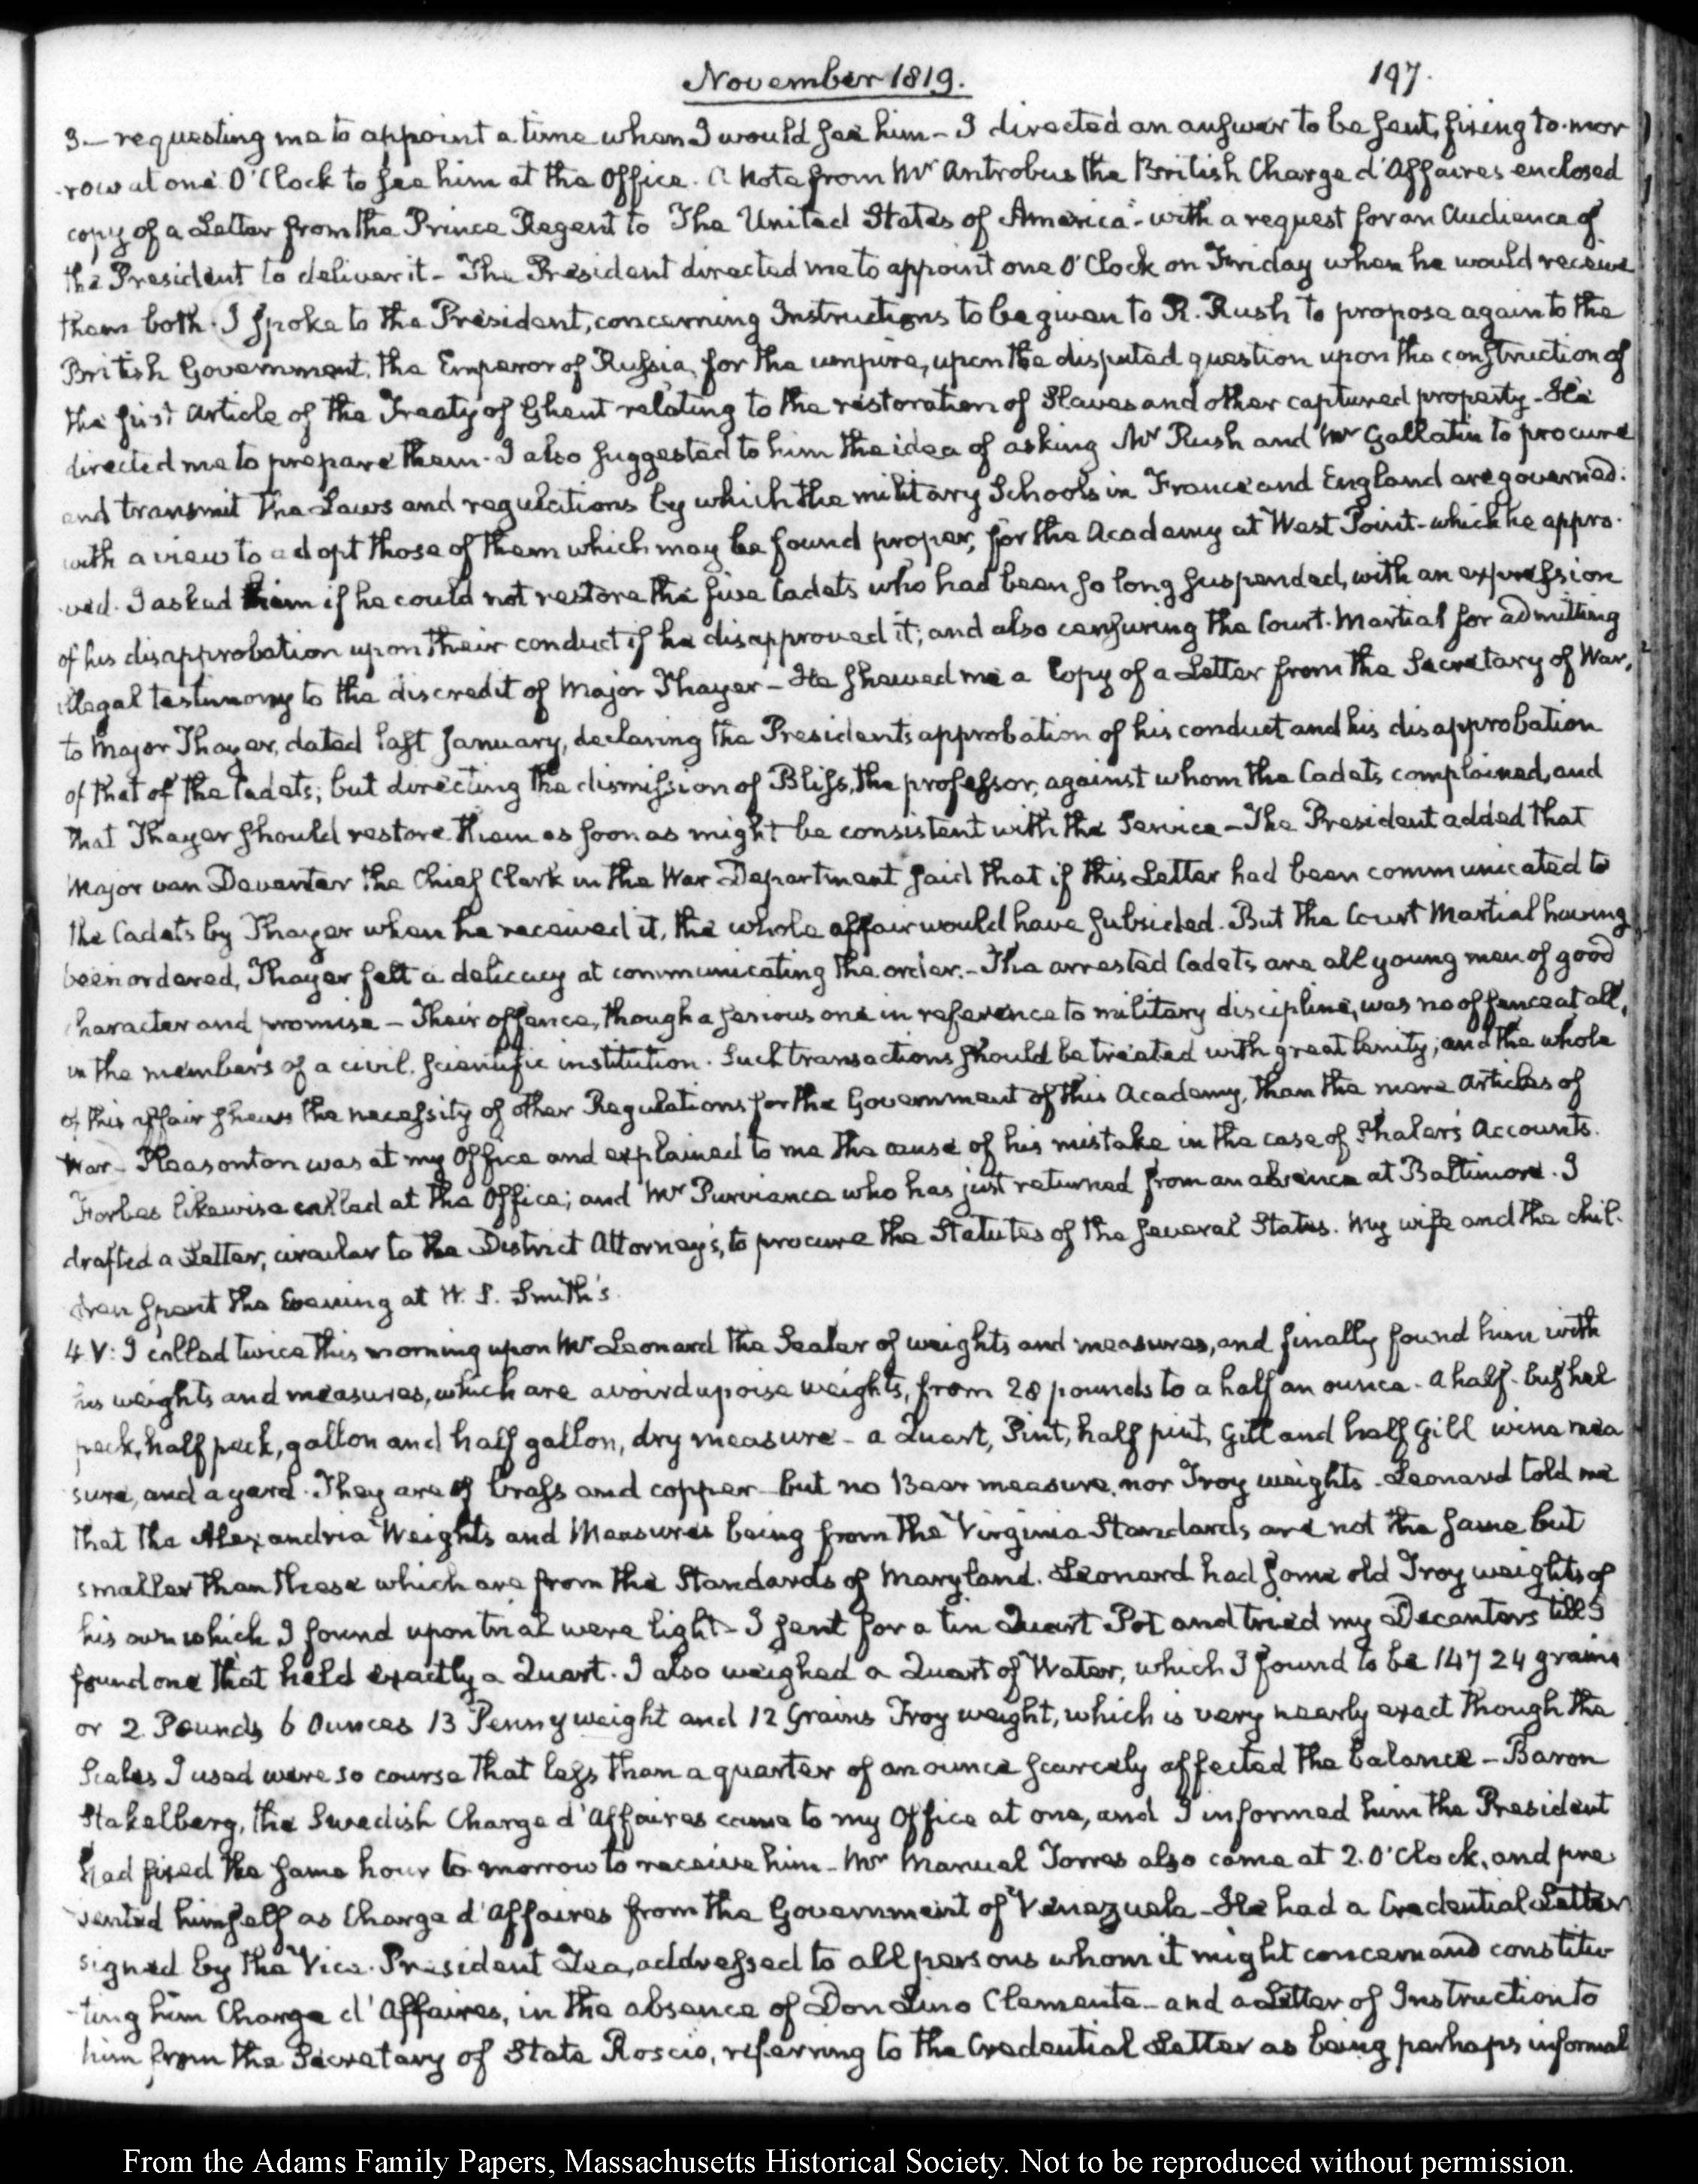 November 1819.
197.
3— requesting me to appoint a time when I would see him – I directed an answer to be sent, fixing to-mor
-row at one O'Clock to see him at the Office. A Note from Mr Antrobus the British Charge d'Affaires enclosed
copy of a Letter from the Prince Regent to "The United States of America" - with a request for an Audience of
the President to deliver it - The President directed me to appoint one O'Clock on Friday when he would receive
them both. I spoke to the President, concerning Instructions to be given to R. Rush to propose again to the
British Government, the Emperor of Russia, for the umpire, upon the disputed question upon the construction of
the first Article of the Treaty of Ghent relating to the restoration of Slaves and other captured property - He
directed me to prepare them. I also suggested to him the idea of asking Mr Rush and Mr Gallatin to procure
and transmit the Laws and regulations by which the military Schools in France and England are governed:
with a view to adopt those of them which may be found proper, for the Academy at West Point - which he appro-
-ved. I asked him if he could not restore the five Cadets who had been so long suspended, with an expression
of his disapprobation upon their conduct if he disapproved it; and also censuring the Court-Martial for admitting
illegal testimony to the discredit of Major Thayer – He shewed me a Copy of a Letter from the Secretary of War,
to Major Thayer, dated last January, declaring the Presidents approbation of his conduct and his disapprobation
of that of the Cadets; but directing the dismission of Bliss, the professor, against whom the Cadets complained, and
that Thayer should restore them as soon as might be consistent with the Service – The President added that
Major van Deventer the Chief Clerk in the War Department said that if this Letter had been communicated to
the Cadets by Thayer when he received it, the whole affair would have subsided. But the Court Martial having
been ordered, Thayer felt a delicacy at communicating the order. - The arrested Cadets are all young men of good
character and promise – Their offence, though a serious one in reference to military discipline, was no offence at all,
in the members of a civil, scientific institution. Such transactions should be treated with great lenity; and the whole
of this affair shews the necessity of other Regulations for the Government of this Academy, than the mere Articles of
War - Pleasonton was at my Office and explained to me the cause of his mistake in the case of Shaler's Accounts.
Forbes likewise called at the Office; and Mr Purviance who has just returned from an absence at Baltimore. I
drafted a Letter, circular to the District Attorney's, to procure the Statutes of the several States. My wife and the chil-
dren spent the Evening at W. S. Smith's.
4. V: I called twice this morning upon Mr Leonard the Sealer of weights and measures, and finally found him with
his weights and measures, which are avoirdupoise weights, from 28 pounds to a half an ounce. A half-bushel
peck, half peck, gallon and half gallon, dry measure - a Quart, Pint, half pint, Gill and half Gill wine mea
sure, and a yard. They are of brass and copper - but no Beer measure, nor Troy weights. Leonard told me
that the Alexandria Weights and Measures being from the Virginia Standards are not the same but
smaller than these which are from the Standards of Maryland. Leonard had some old Troy weights of
his own which I found upon trial were light – I sent for a tin Quart Pot and tried my Decanters till I
found one that held exactly a Quart. I also weighed a Quart of Water, which I found to be 14724 grains
or 2 Pounds 6 Ounces 13 Pennyweight and 12 Grains Troy weight, which is very nearly exact though the
Scales I used were so course that less than a quarter of an ounce scarcely affected the balance – Baron
Stakelberg, the Swedish Charge d'Affaires came to my Office at one, and I informed him the President
had fixed the same hour to-morrow to receive him - Mr Manuel Torres also came at 2. O'Clock, and pre-
sented himself as Charge d'Affaires from the Government of Venezuela – He had a Credential Letter
signed by the Vice-President Zea, addressed to all persons whom it might concern and constitu-
-ting him Charge d'Affaires, in the absence of Don Lino Clemente - and a Letter of Instruction to
him from the Secretary of State Roscio, referring to the Credential Letter as being perhaps informal
From the Adams Family Papers, Massachusetts Historical Society. Not to be reproduced without permission.